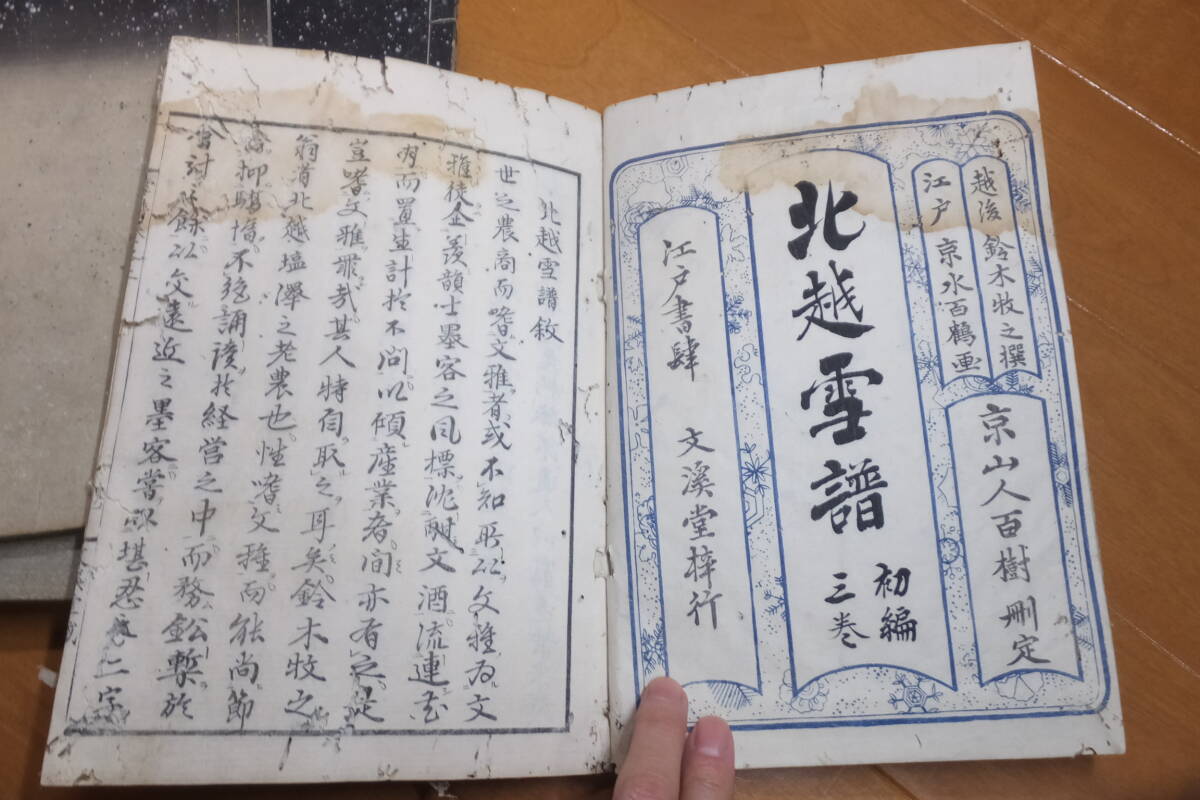 越後 鈴木牧之撰
江戸 京水百鶴画
京山人百樹 刪定
北越雪譜
初編
三巻
江戸書肆 文溪堂梓行
北越雪譜敘
世之農商而嗜文雅者或不知所以文雅為文
雅徒企羨韻士墨客之風標沈酣文酒流連花
月而置生計於不問以傾産業者間亦有之是
豈嗜文雅罪哉其人特自取之耳矣鈴木牧之
翁者北越塩澤之老農也性嗜文雅而能尚節
倹抑驕惰不絶誦讀於経営之中而務鉛槧於
會計之餘以交遠近之墨客嘗以堪忍二字